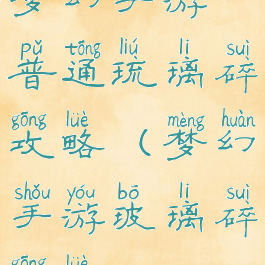 梦幻手游
pǔ tōng liú li suì
普通琉璃碎
gōng lüè mèng huàn
攻略（梦幻
shǒu yóu bō li suì
手游玻璃碎
gōng lüè